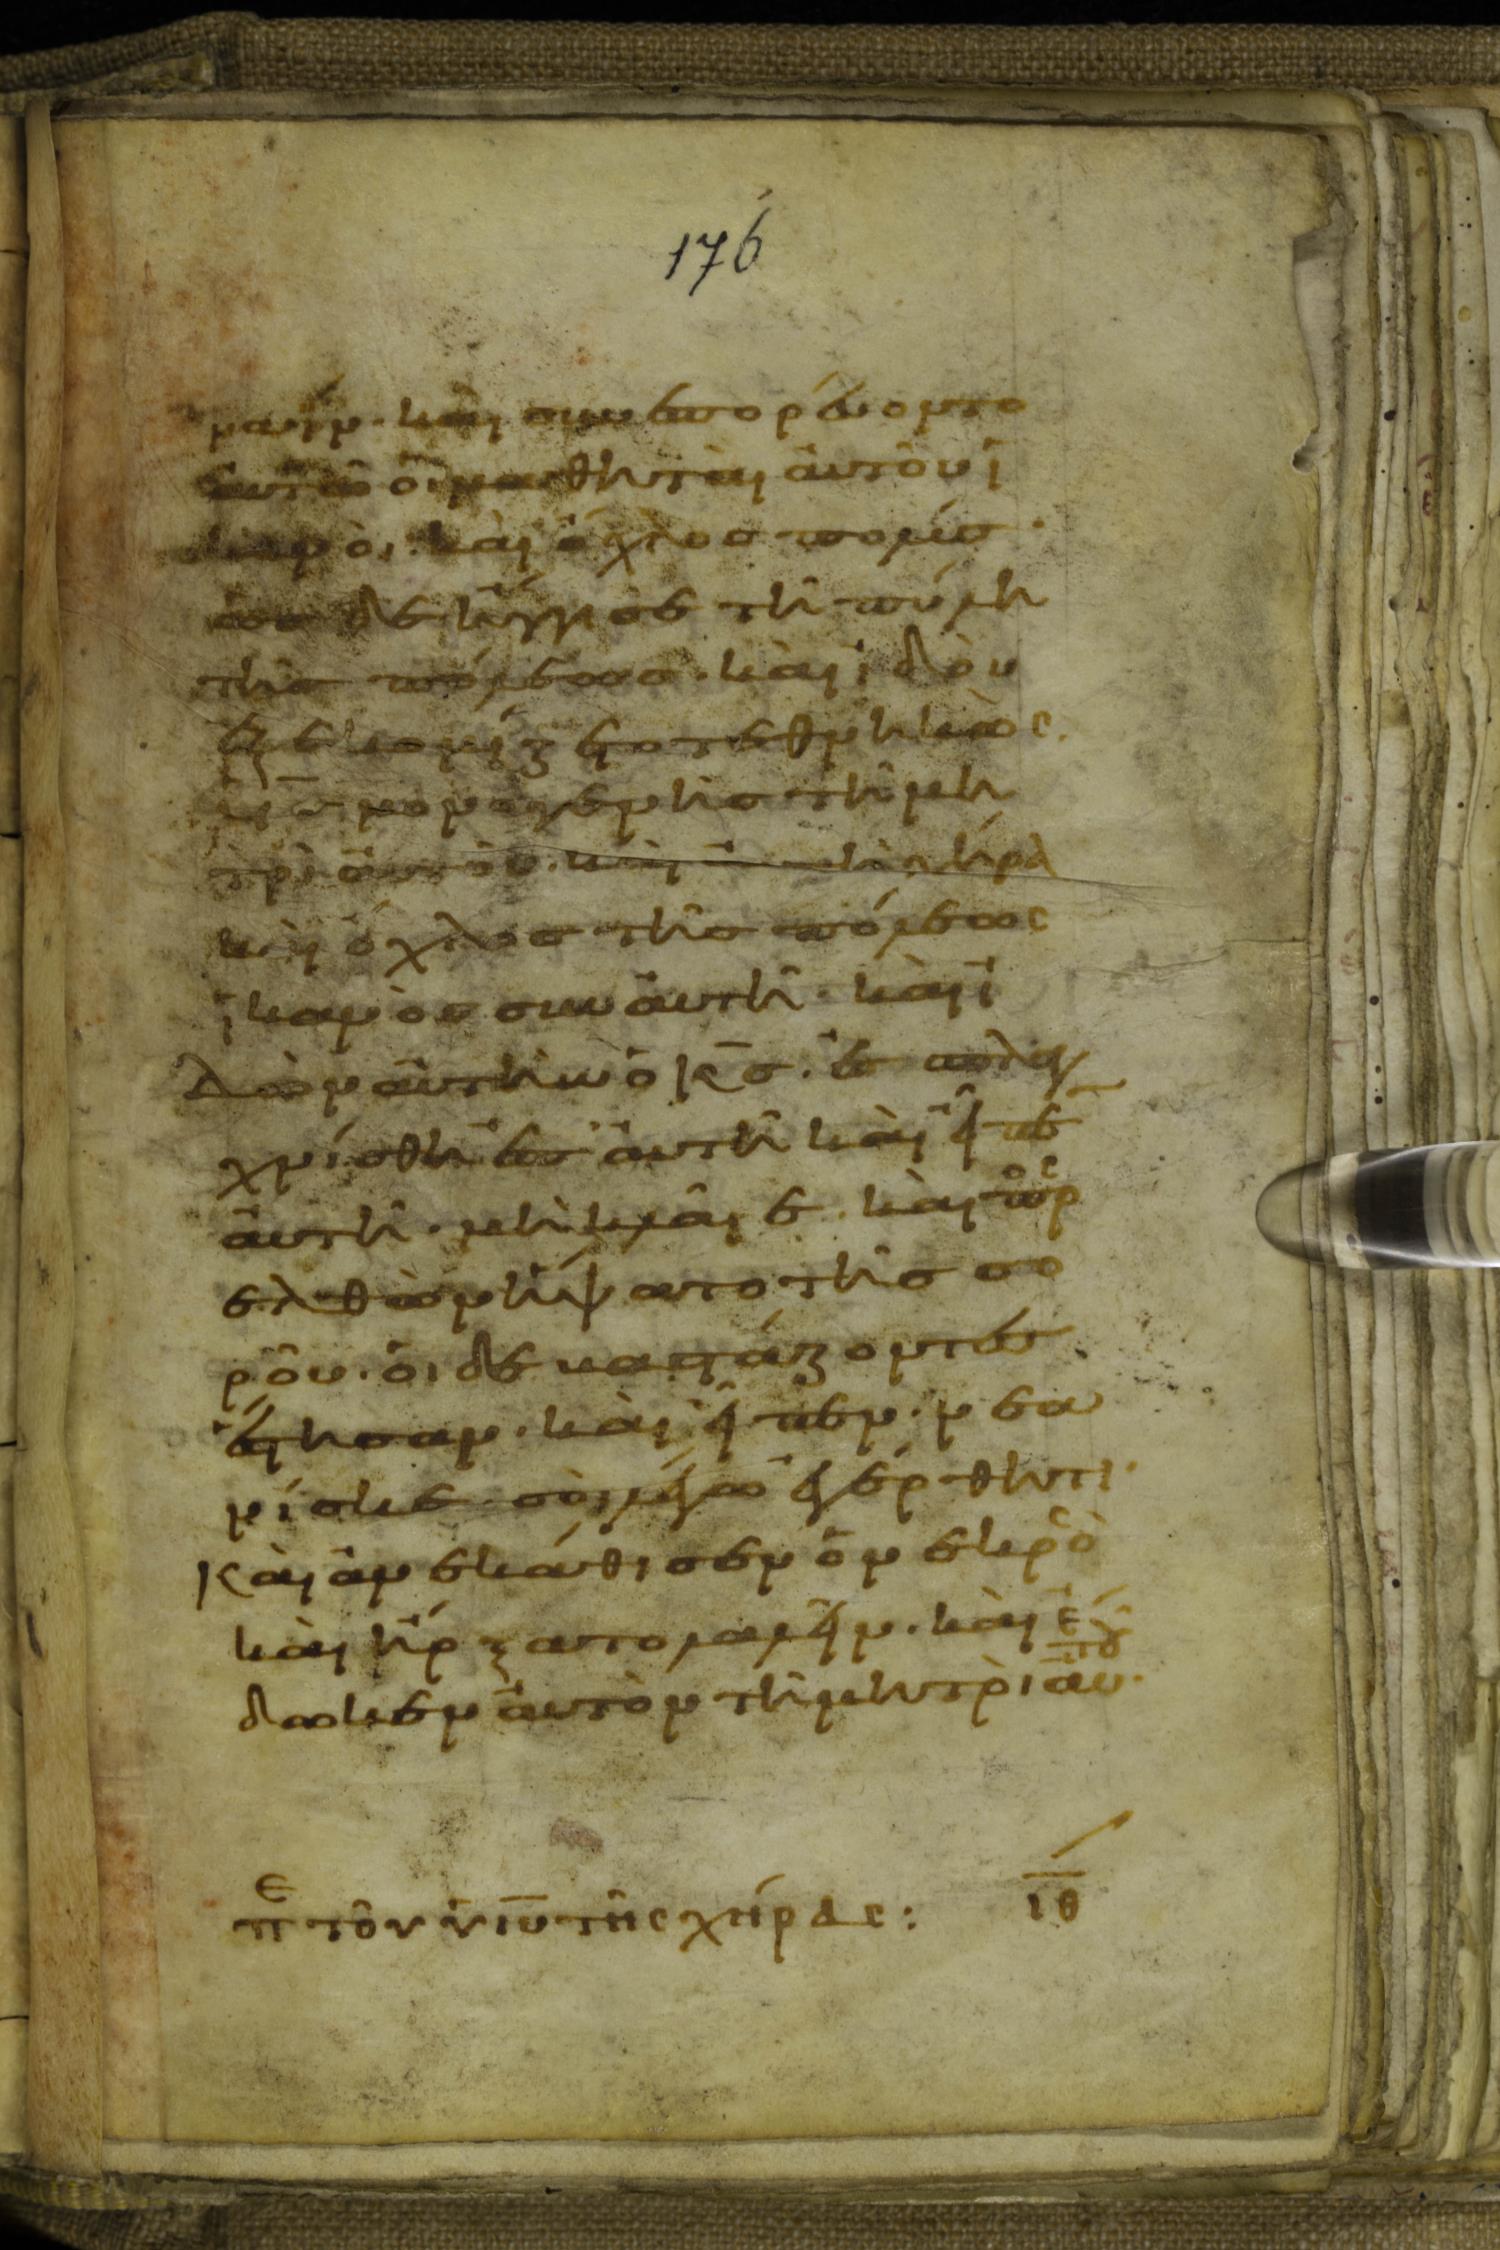 176
μαΐν· καὶ συνεπορεύοντο
αὐτῶ οἱ μαθηταὶ αὐτοῦ ἱ
κανοὶ· καὶ ὄχλος πολύς·
ὡς δὲ ἤγγισε τῆ πύλη
τῆς πόλεως· καὶ ἰδοὺ
ἐξεκομίζετο τεθνηκὼς
υἱὸς μονογενὴς τῆ μη
τρὶ αὐτοῦ· καὶ αὐτὴ χήρα
καὶ ὄχλος τῆς πόλεως
ἱκανὸς συν αὐτῆ· καὶ ἰ
δὼν αὐτὴν ὁ κ̅ς̅· ἐσπλαγ
χνίσθη ἐπ αὐτῆ καὶ εἶπε
αὐτῆ· μὴ κλαῖε· καὶ προσ
ελθὼν ἥψατο τῆς σο
ροῦ· οἱ δὲ βαστάζοντες
ἔστησαν· καὶ εἶπεν· νεα
νίσκε σοὶ λέγω ἐγέρθητι·
Καὶ ἀνεκάθισεν ὁ νεκρὸς
καὶ ἤρξατο λαλεῖν· καὶ ἔ
δωκεν αὐτὸν τῆ μητρὶ αὐτοῦ·
πε τοῦ υἱοῦ τῆς χήρας: ι̅θ̅